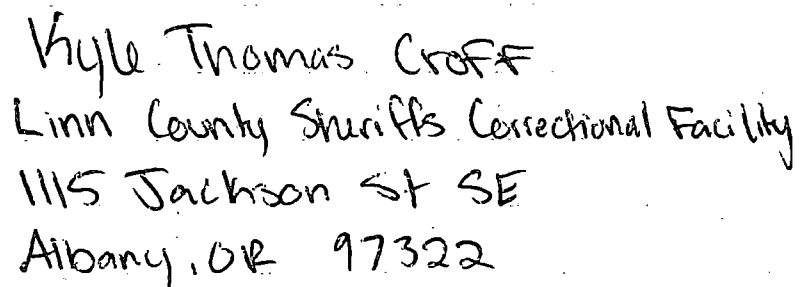 Kyle Thomas Croff
Linn County Sheriffs Correctional Facility
1115 Jackson St SE
Albany, OR 97322